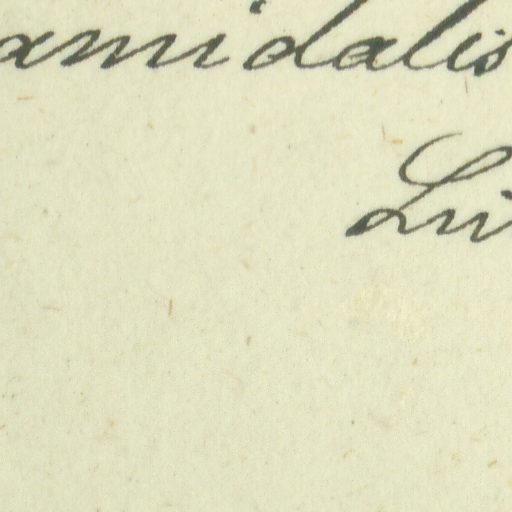 amidalis
Li